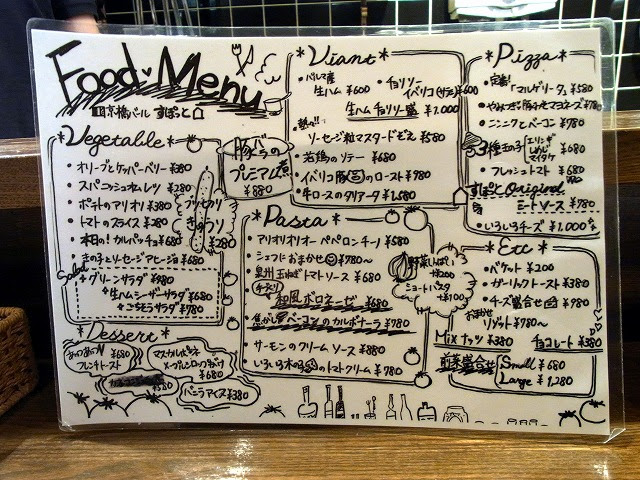 Food Menu
京橋バール すぽっと
*Vegetable*
・オリーブとケッパーベリー ¥380
・スパニッシュオムレツ ¥280
・ポテトのアリオリ ¥380
・トマトのスライス ¥280
・本日のカルパッチョ ¥680
・きのことソーセージアヒージョ ¥680
Salad
+グリーンサラダ ¥480
+生ハムシーザーサラダ ¥680
+ごちそうサラダ ¥980
¥280
豚バラの
プレミアム煮
¥880
*Dessert*
あつあつ
フレンチトースト
¥680
マスカルポーネ
メープルシロップがけ
¥680
バニラアイス ¥380
*Viant*
・パルマ産
生ハム ¥600
・チョリソー
イベリコ(サラミ) ¥600
生ハムチョリソー盛 ¥1,000
・ソーセージ粒マスタードぞえ ¥580
・若鶏のソテー ¥680
・イベリコ豚のロースト ¥980
・牛ロースのタリアータ ¥1,580
*Pasta*
・アリオリオリオ ペペロンチーノ ¥580
・シェフにおまかせ ¥780~
・泉州玉ねぎトマトソース ¥680
和風ボロネーゼ ¥680
・焦がしベーコンのカルボナーラ ¥780
・サーモンのクリームソース ¥880
・いろいろ木の子のトマトクリーム ¥780
¥200
ショートパスタ
¥100
*Pizza*
・定番!
「マルゲリータ」 ¥580
・ニンニクとベーコン ¥780
・3種茸の子
エリンギ
しめじ
マイタケ
¥680
・フレッシュトマト ¥680
すぽっと Original
ミートソース ¥980
・いろいろチーズ ¥1,000
*Etc*
・バケット ¥200
・ガーリックトースト ¥380
・チーズ盛合せ ¥980
・おまかせ
リゾット ¥780~
Mixナッツ ¥380
チョコレート ¥380
前菜盛合せ
Small ¥680
Large ¥1,280